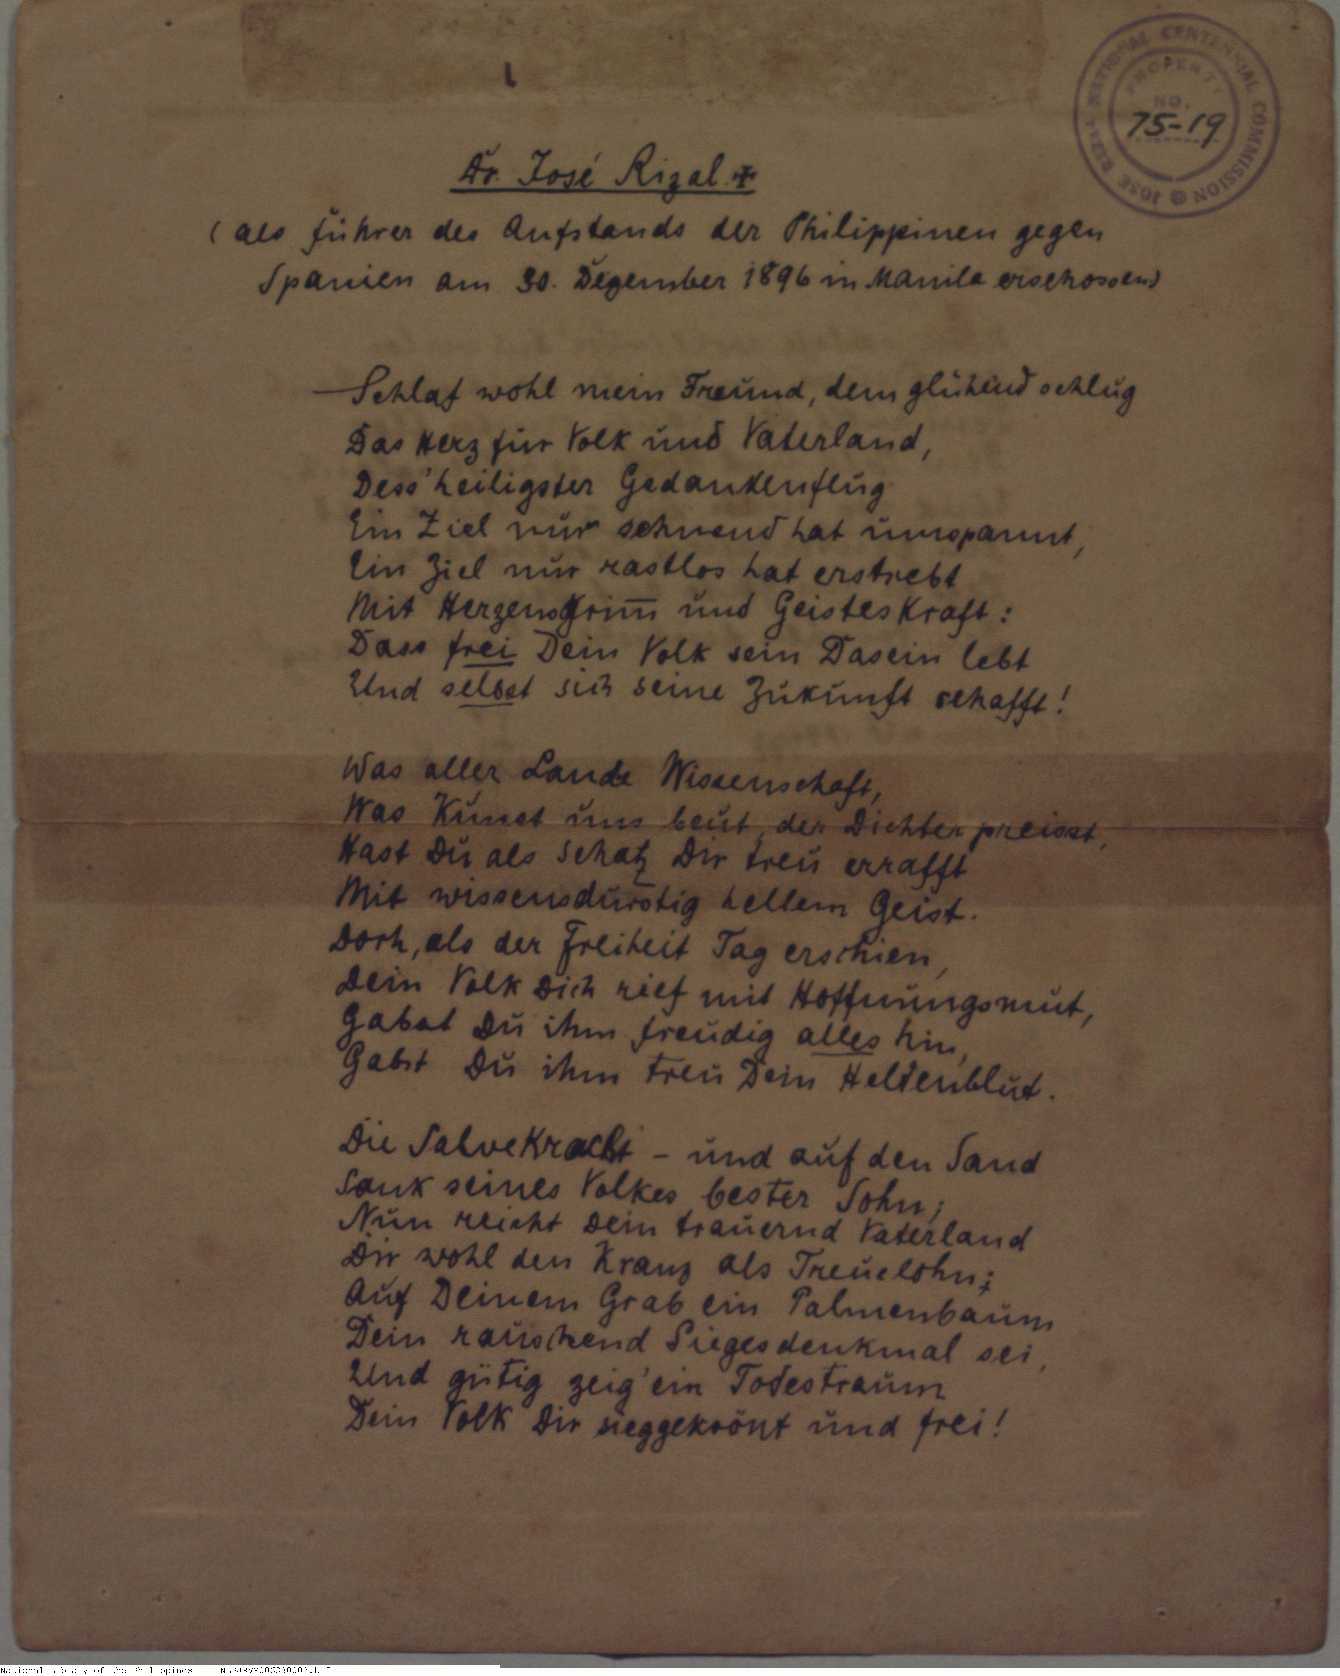 JOSE RIZAL NATIONAL CENTENNIAL COMMISSION
PROPERTY
NO.
75-19
Dr. José Rizal ✠
(als Führer des Aufstands der Philippinen gegen
Spanien am 30. Dezember 1896 in Manila erschossen)
Schlaf wohl mein Freund, dem glühend schlug
Das Herz für Volk und Vaterland,
Dess' heiligster Gedankenflug
Ein Ziel nur sehnend hat umspannt,
Ein Ziel nur rastlos hat erstrebt
Mit Herzensgrim̅ und Geisteskraft:
Dass frei Dein Volk sein Dasein lebt
Und selbst sich seine Zukunft schafft!
Was aller Lande Wissenschaft,
Was Kunst uns beut, der Dichter preisst,
Hast Du als Schatz Dir treu errafft
Mit wissensdurstig hellem Geist.
Doch, als der Freiheit Tag erschien,
Dein Volk Dich rief mit Hoffnungsmut,
Gabst Du ihm freudig alles hin,
Gabst Du ihm treu Dein Heldenblut.
Die Salve kracht – und auf den Sand
Sank seines Volkes bester Sohn;
Nun reicht Dein trauernd Vaterland
Dir wohl den Kranz als Treuelohn;
Auf Deinem Grab ein Palmenbaum
Dein rauschend Siegesdenkmal sei,
Und gütig zeig' ein Todestraum
Dein Volk Dir sieggekrönt und frei!
National Library of the Philippines